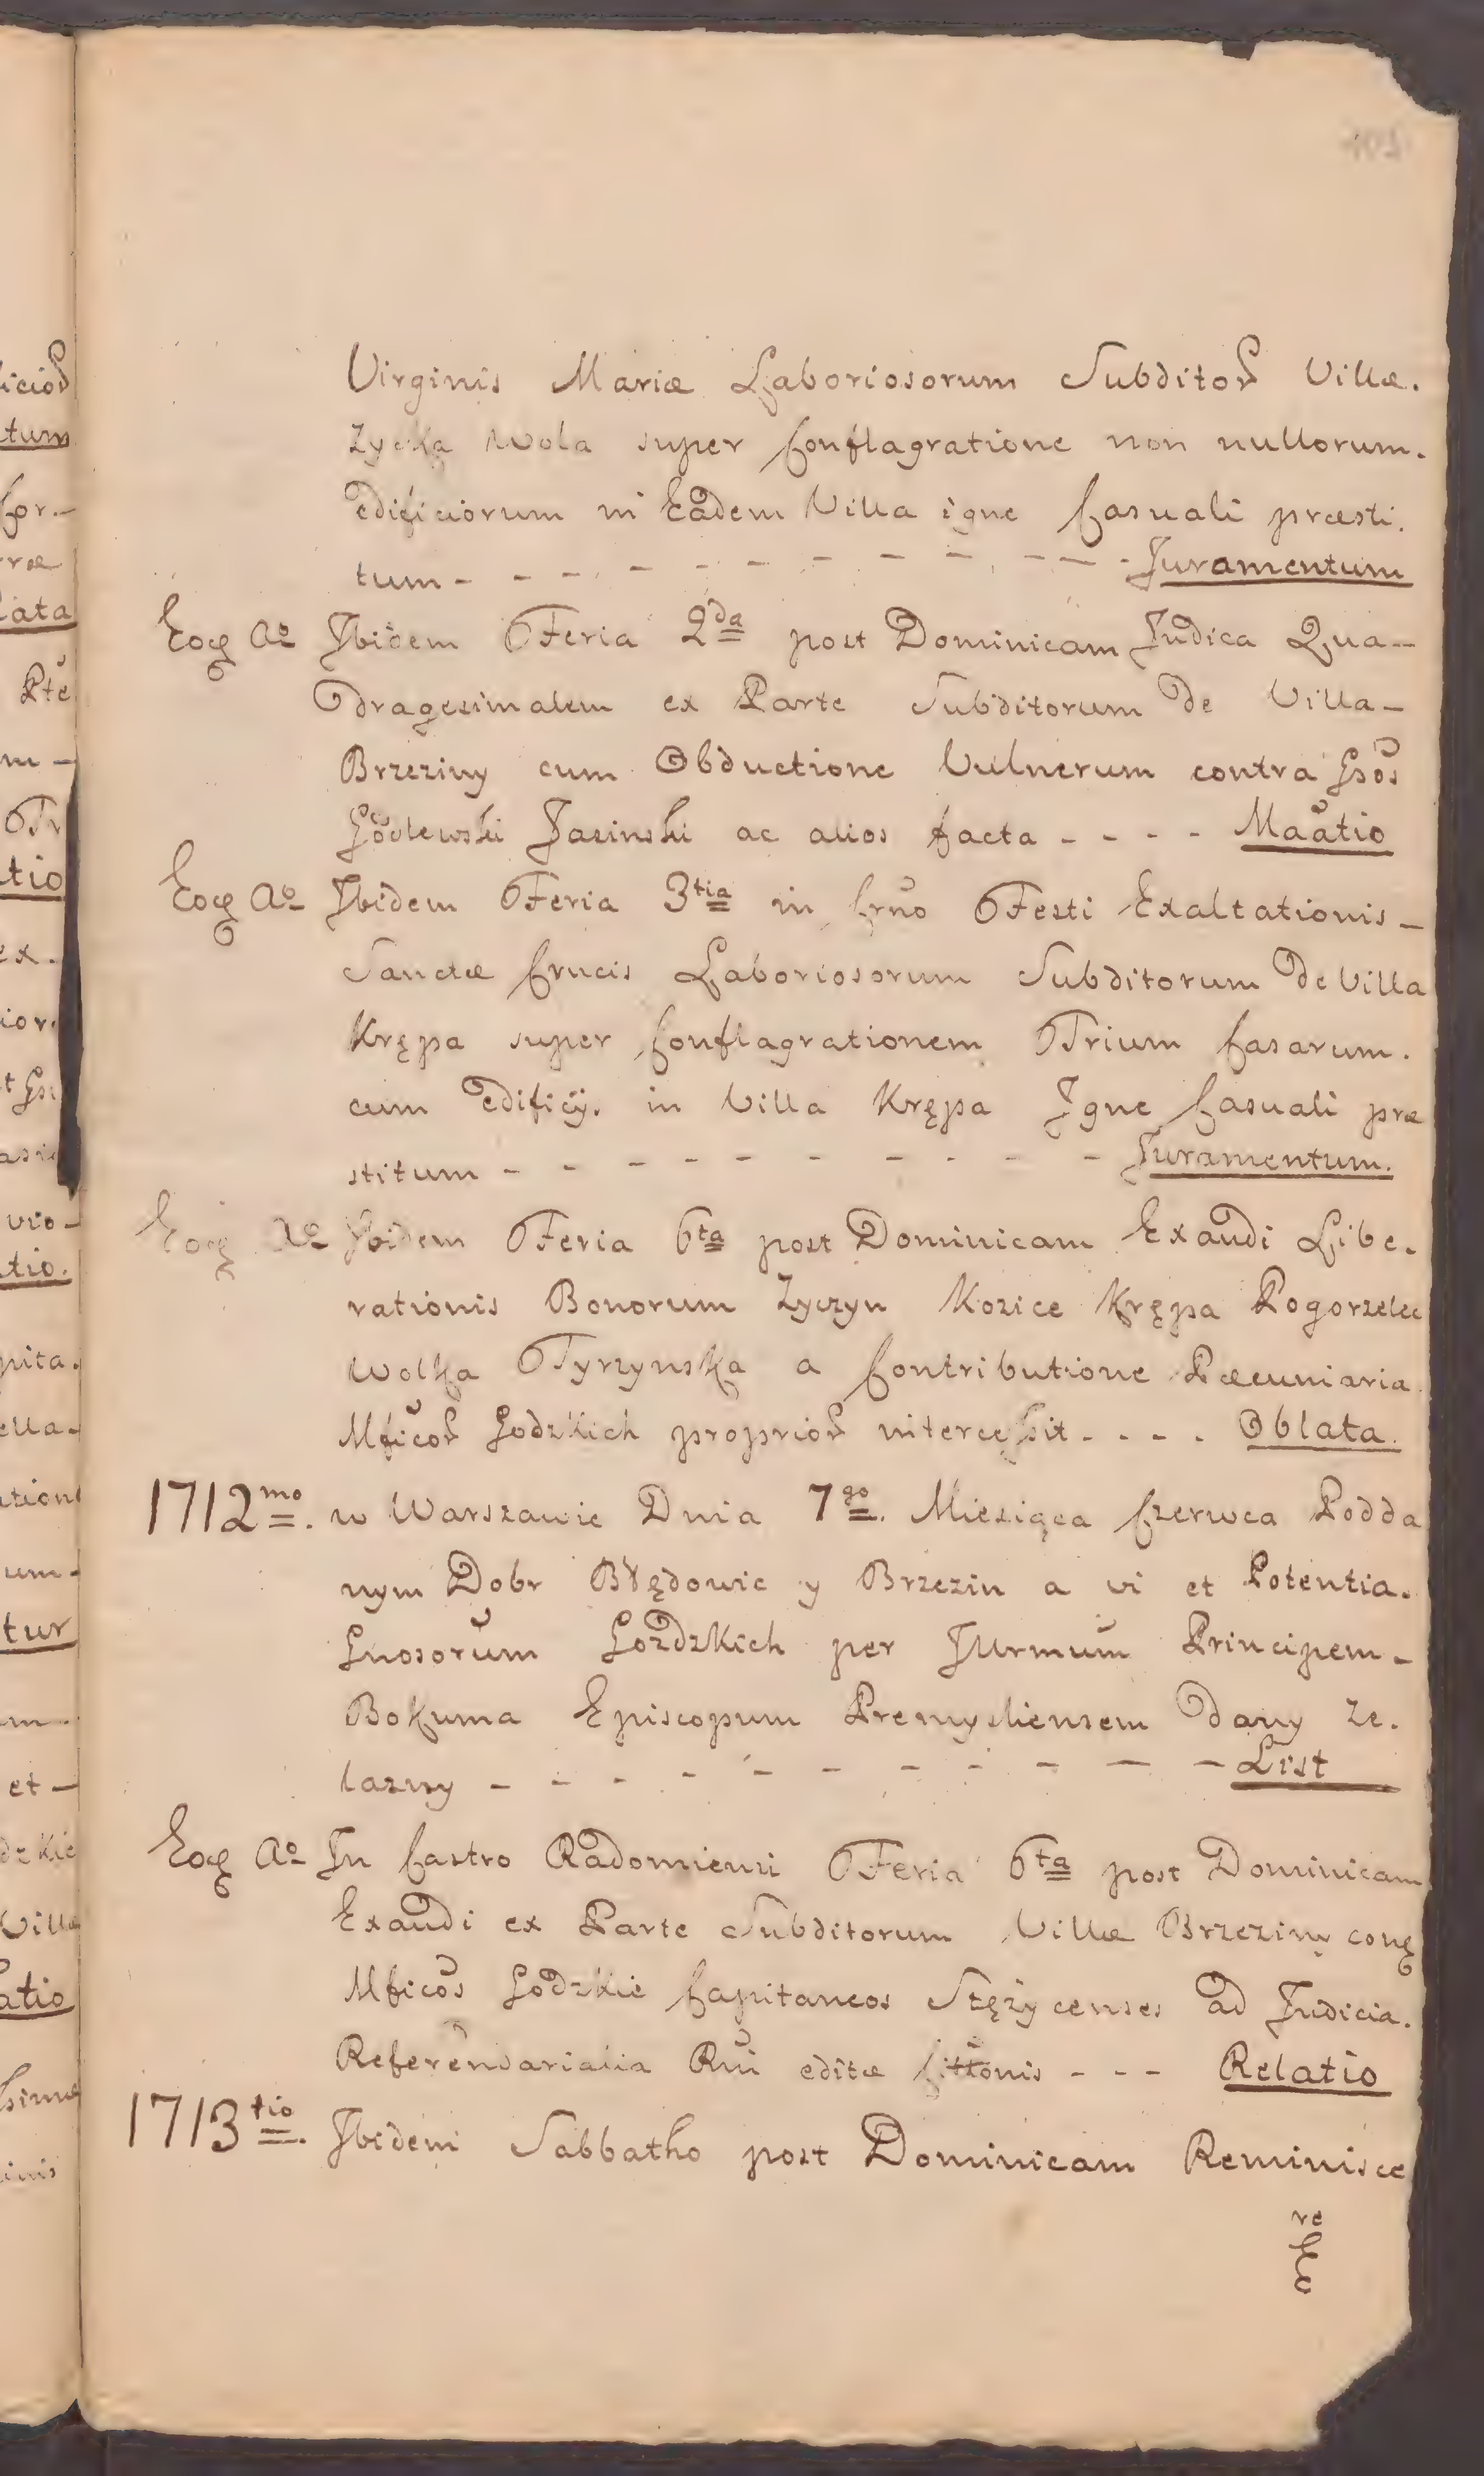 Virginis Mariæ Laboriosorum Subditoꝝ Villæ.
Zycka Wola super Conflagratione non nullorum.
Edificiorum in Eadem Villa igne Casuali præsti.
tum - - - - - - - - - - - Juramentum
Eoq Aº Ibidem Feria 2da post Dominicam Judica Qua-
dragesimalem ex Parte Subditorum de Villa-
Brzeziny cum Obductione Vulnerum contra Gsos
Godlewski Jasinski ac alios facta - - - - Maatio
Eoq Aº Ibidem Feria 3tia in Crno Festi Exaltationis-
Sanctæ Crucis Laboriosorum Subditorum de Villa
Krępa super Conflagrationem Trium Casarum.
cum Edificij. in Villa Krępa Igne Casuali præ
stitum - - - - - - - - - - Juramentum.
Eoq Aº Ibidem Feria 6ta post Dominicam Exaudi Libe.
rationis Bonorum Zyczyn Kozice Krępa Pogorzelec
Wolka Tyrzynska a Contributione Pæcuniaria
Mficoꝝ Godzkich proprioꝝ intercessit - - - - Oblata.
1712mo. w Warszawie Dnia 7go. Miesiąca Czerwca Podda
nym Dobr Błędowic y Brzezin a vi et Potentia.
Gnosorum Gozdzkich per Illrmum Principem-
Bokuma Episcopum Premysliensem dany że.
lazny - - - - - - - - - - - List
Eoq Aº In Castro Radomiensi Feria 6ta post Dominicam
Exaudi ex Parte Subditorum Villæ Brzeziny conq
Mficos Godzkie Capitaneos Stężycenses ad Judicia.
Referendarialia Rni editæ Cittonis - - - Relatio
1713tio. Ibidem Sabbatho post Dominicam Reminisce
re